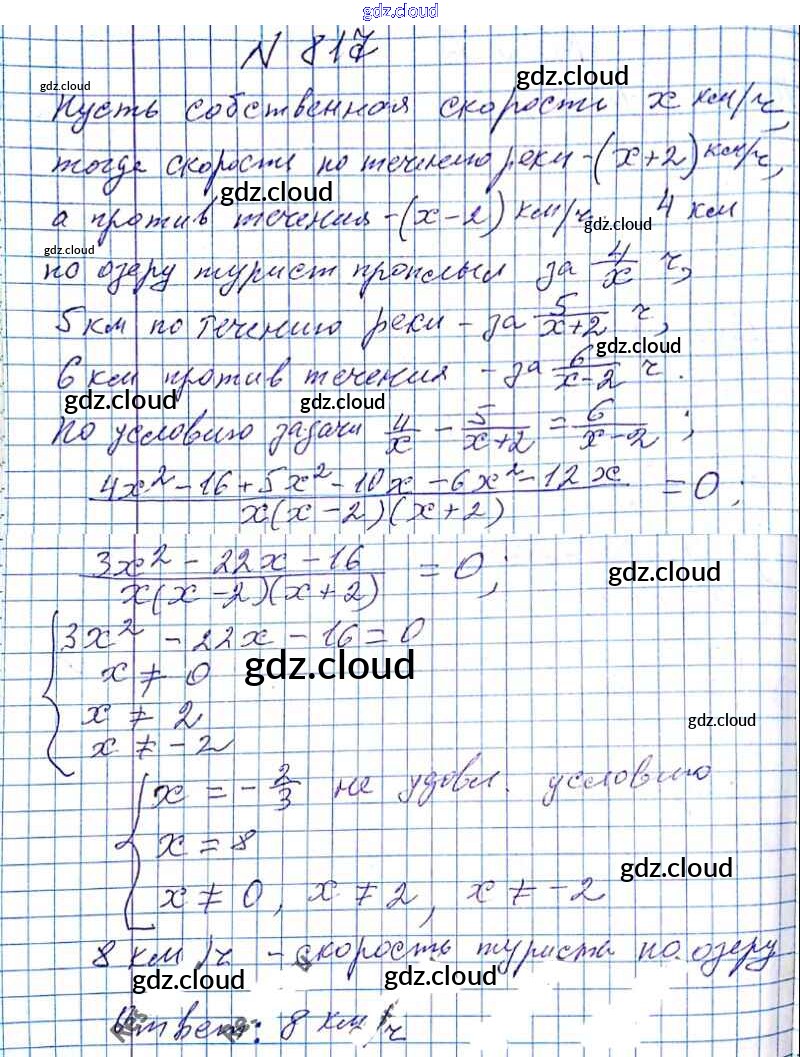 gdz.cloud
N 817
gdz.cloud gdz.cloud
Пусть собственная скорость x км/ч,
тогда скорость по течению реки -(x+2) км/ч,
gdz.cloud
а против течения -(x-2) км/ч. 4 км
gdz.cloud gdz.cloud
по озеру турист проплыл за 4/x ч,
5 км по течению реки - за 5/(x+2) ч,
gdz.cloud
6 км против течения - за 6/(x-2) ч.
gdz.cloud gdz.cloud
По условию задачи 4/x - 5/(x+2) = 6/(x-2) ;
(4x² - 16 + 5x² - 10x - 6x² - 12x)/(x(x-2)(x+2)) = 0 ;
(3x² - 22x - 16)/(x(x-2)(x+2)) = 0 ;
gdz.cloud
{3x² - 22x - 16 = 0
gdz.cloud
x ≠ 0
x ≠ 2
gdz.cloud
x ≠ -2
{x = -2/3 не удовл. условию
x = 8
gdz.cloud
x ≠ 0, x ≠ 2, x ≠ -2
8 км/ч - скорость туриста по озеру
gdz.cloud gdz.cloud
Ответ: 8 км/ч